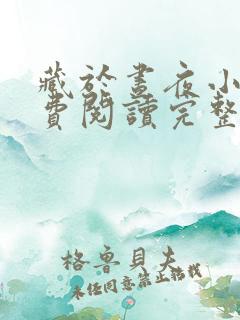 藏於晝夜小
費閱讀完整
格魯貝夫
未经同意禁止转载